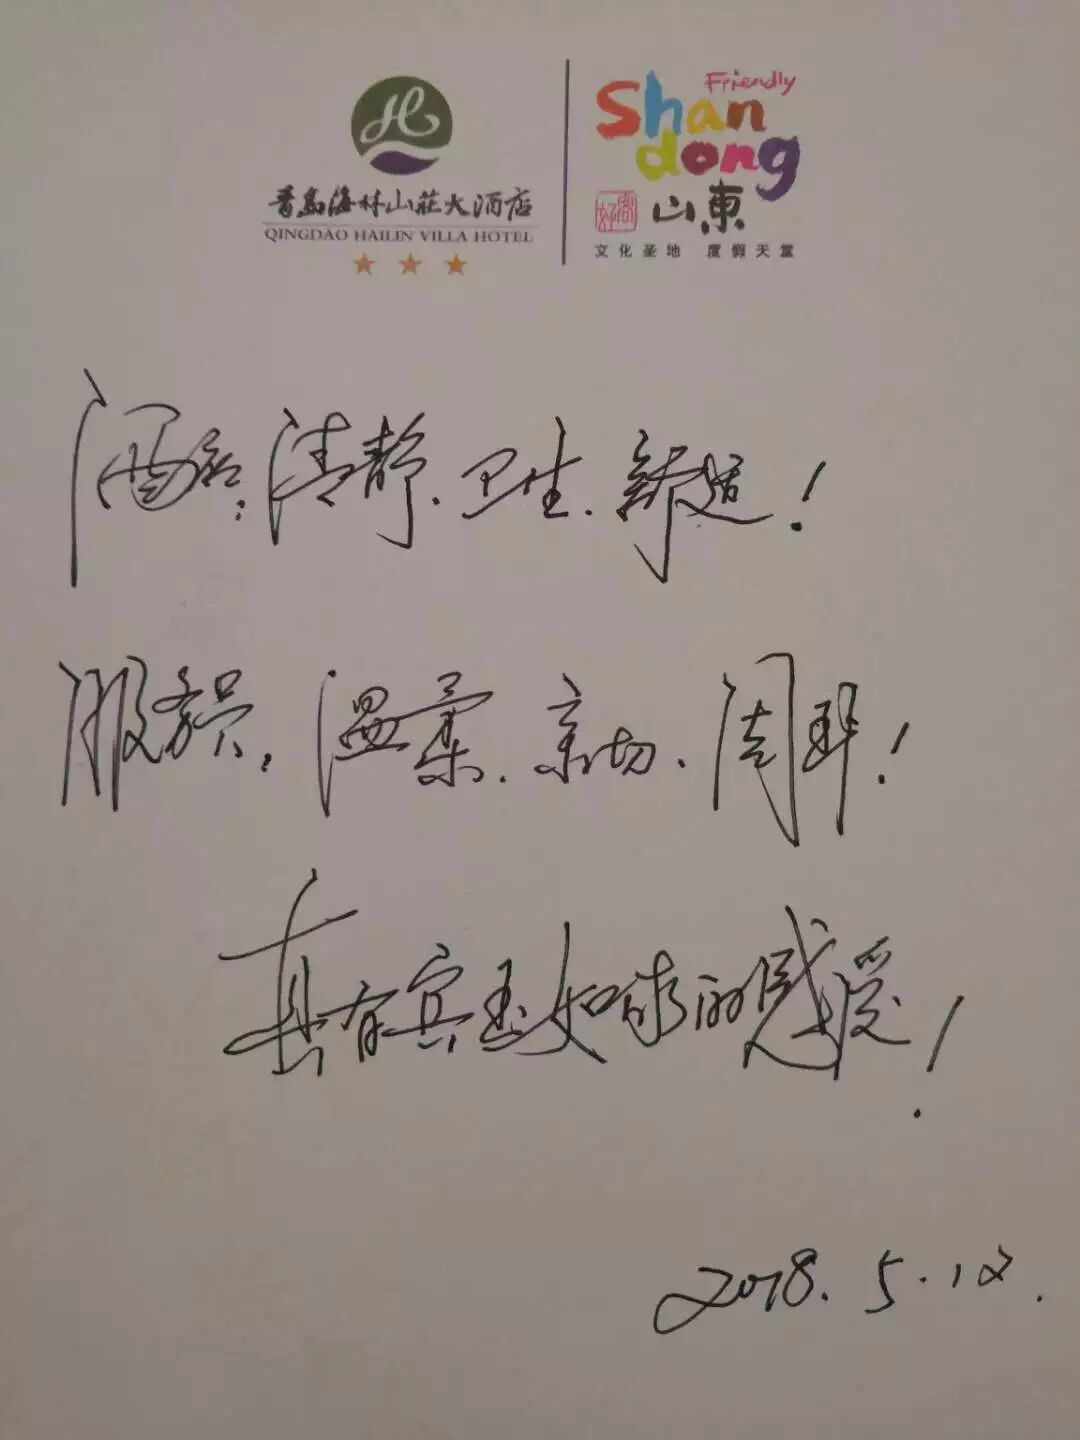 Friendly
Shan
dong
青岛海林山莊大酒店
QINGDAO HAILIN VILLA HOTEL
好客 山東
文化圣地 度假天堂
酒店：清静、卫生、舒适！
服务员：温柔、亲切、周到！
真有宾至如归的感受！
2018.5.12.